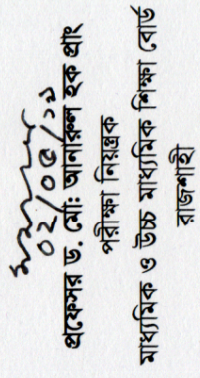 ০২/০৫/১৯
প্রফেসর ড. মোঃ আনারুল হক প্রাং
পরীক্ষা নিয়ন্ত্রক
মাধ্যমিক ও উচ্চ মাধ্যমিক শিক্ষা বোর্ড
রাজশাহী